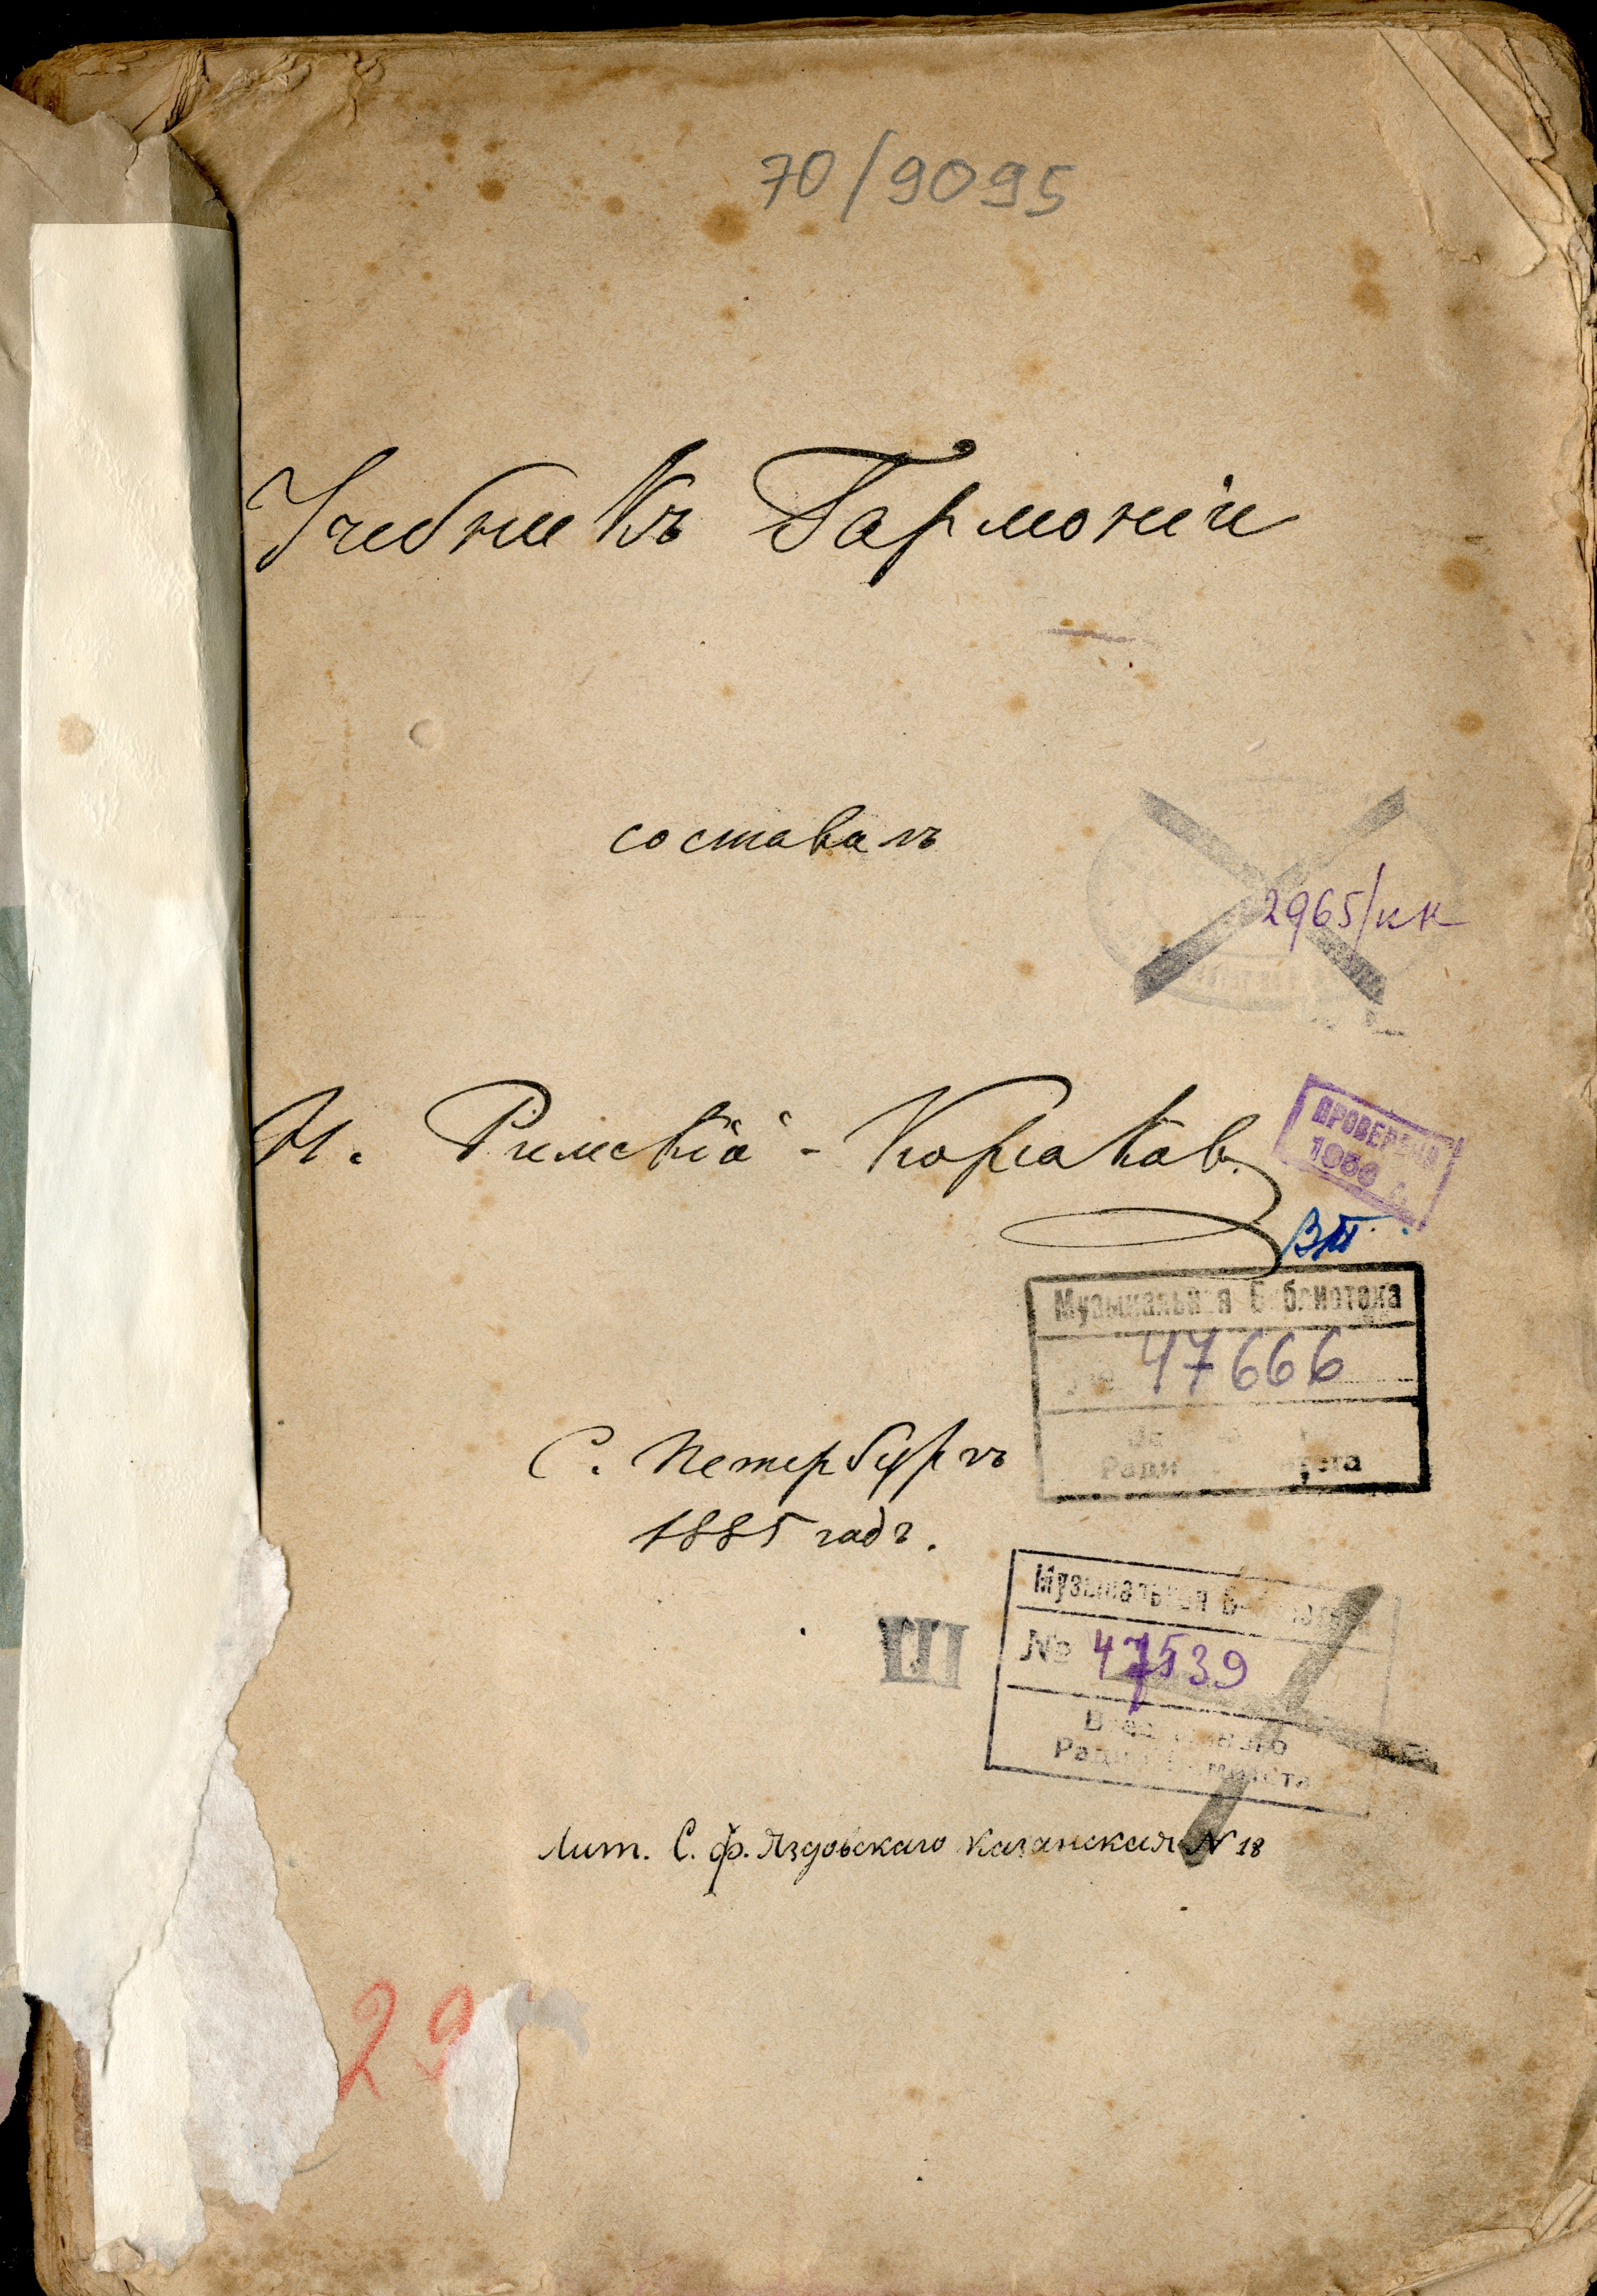 70/9095
Учебникъ Гармоніи
составилъ
2965/кк
Н. Римскій-Корсаков.
ПРОВЕРЕНО
1936 г.
ВП
Музыкальная Библиотека
47666
С. Петербургъ
1885 годъ.
Музыкальная
№ 47539
III
Лит. С. Ф. Яздовскаго Казанская N 18
29